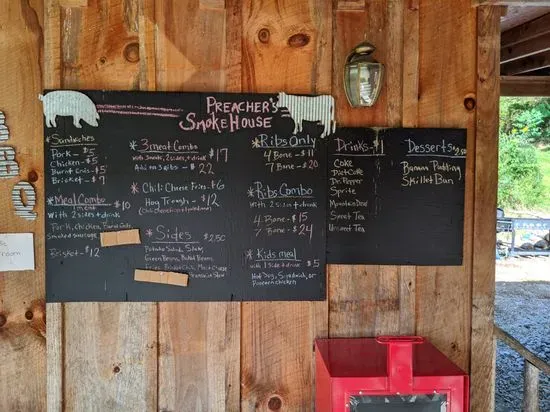 PREACHER'S
SMOKEHOUSE
*Sandwiches
Pork - $5
Chicken - $5
Burnt Ends - $5
Brisket - $7
*Meal Combo
1 meat
$10
With 2 sides + drink
Pork, Chicken, Burnt Ends,
Smoked sausage
Brisket - $12
*3 meat Combo
With 2 sides + drink
$17
Add on 3 Ribs - $22
*Chili Cheese Fries - $6
Hog Trough - $12
*Sides $2.50
Potato Salad, Slaw,
Green Beans, Baked Beans,
*Ribs Only
4 Bone - $11
7 Bone - $20
*Ribs Combo
With 2 sides + drink
4 Bone - $15
7 Bone - $24
*Kids meal
With 1 side + drink $5
Hot Dog, Sandwich, or
Popcorn chicken
Drinks $1
Coke
Diet Coke
Dr. Pepper
Sprite
Mountain Dew
Sweet Tea
Unsweet Tea
Desserts $2.50
Banana Pudding
Skillet Bar
BBQ
room